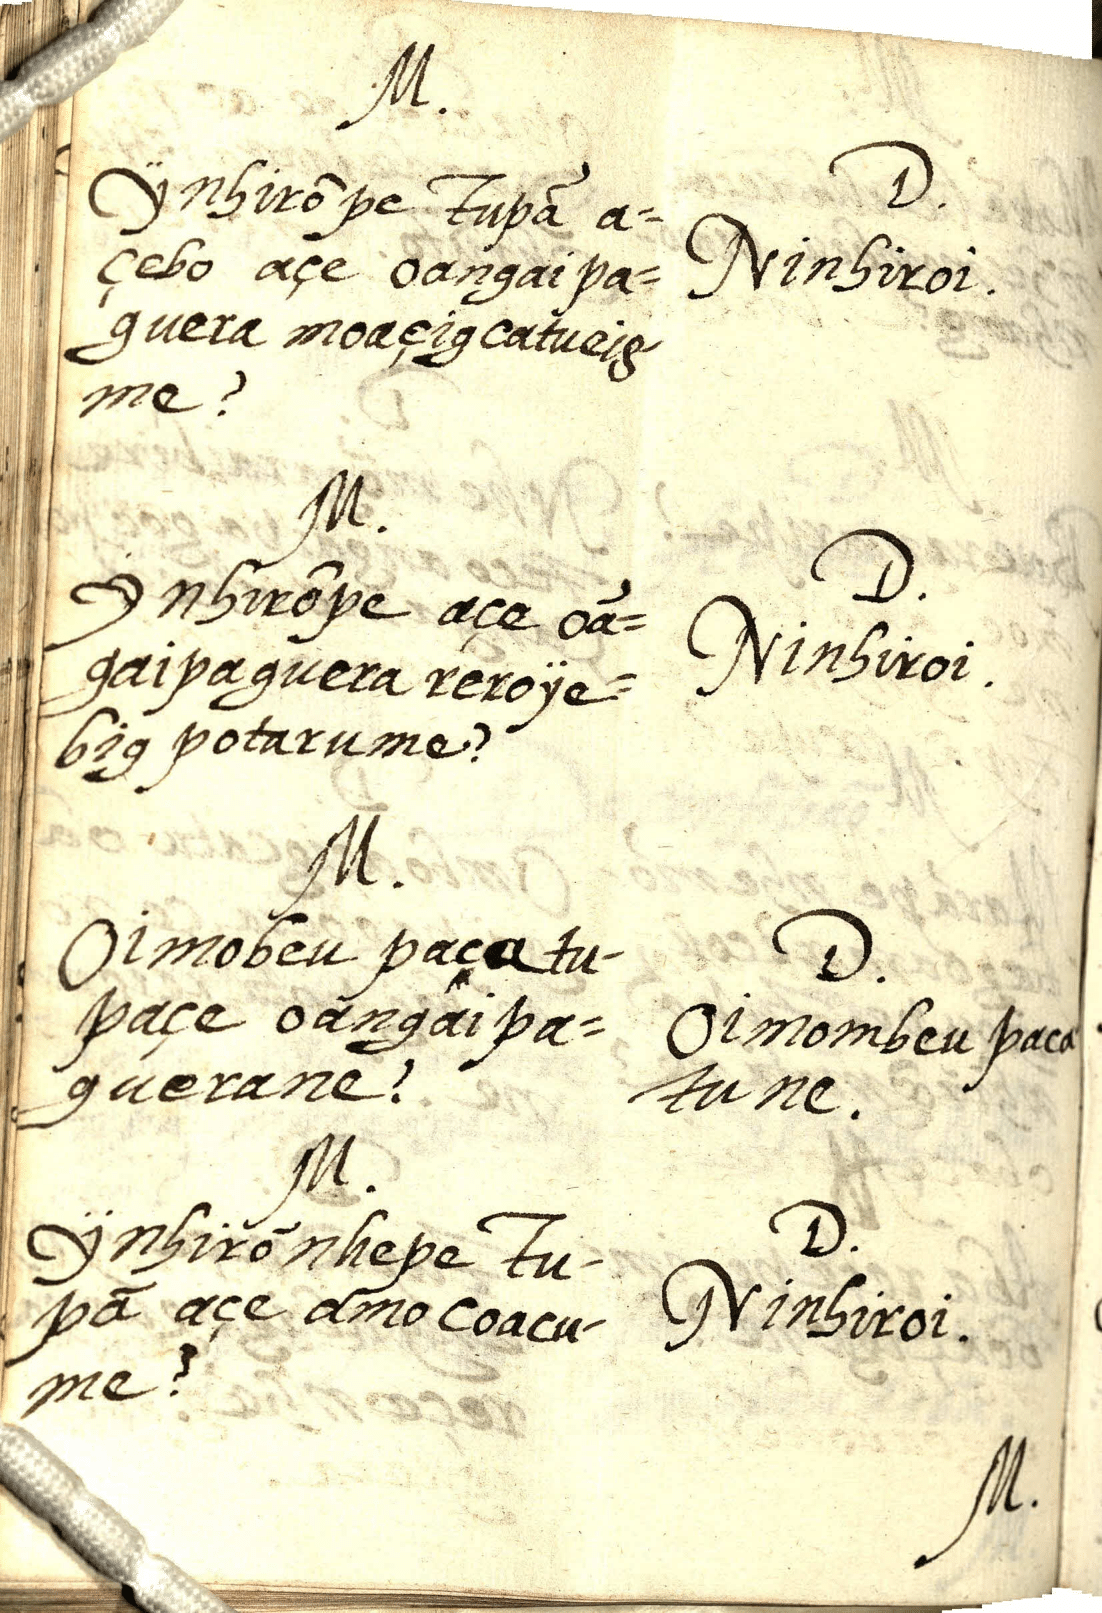 M.
Ÿnhirõpe Tupã a=
çebo açe oangaipa=
guera moaçigcatueig
me?
D.
Ninhiroi.
M.
Ÿnhirõpe açe oã=
gaipaguera reroÿe=
big potarume?
D.
Ninhiroi.
M.
Oimobeu paçatu-
paçe oangaipa=
guerane?
D.
Oimombeu paca
tu ne.
M.
Ÿnhirõnhepe Tu-
pã açe amo coacu-
me?
D.
Ninhiroi.
M.